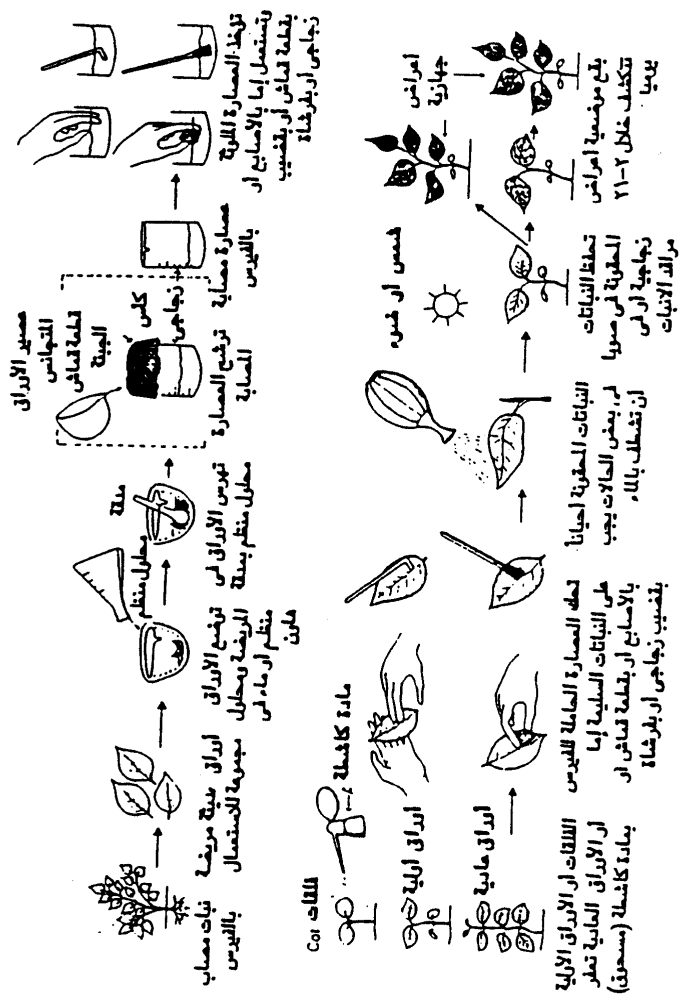 نبات مصاب
بالفيرس
أوراق حديثة مريضة
مجموعة للاستعمال
محلول منظم
توضع الأوراق
المريضة ومحلول
منظم أو ماء في
هاون
مدقة
تهرس الأوراق في
محلول منظم بمدقة
عصير الأوراق
المتجانس
قطعة قماش
الجبنة
كأس
زجاجي
ترشح العصارة
المصابة
عصارة مصابة
بالفيرس
تؤخذ العصارة الملوثة
وتستعمل إما بالأصابع أو
بقطعة قماش أو بقضيب
زجاجي أو بفرشاة
فلقات Cot
مادة كاشطة
أوراق أولية
أوراق عادية
الفلقات أو الأوراق الأولية
أو الأوراق العادية تعفر
بمادة كاشطة (مسحوق)
تحك العصارة الحاملة للفيرس
على النباتات السليمة إما
بالأصابع أو بقطعة قماش أو
بقضيب زجاجي أو بفرشاة
النباتات المحقونة أحياناً
في بعض الحالات يجب
أن تشطف بالماء
شمس أو ضوء
تحفظ النباتات
المحقونة في صوبا
زجاجية أو في
مراقد الانبات
أعراض
جهازية
بقع موضعية أعراض
تتكشف خلال ٢-٢١
يوميا